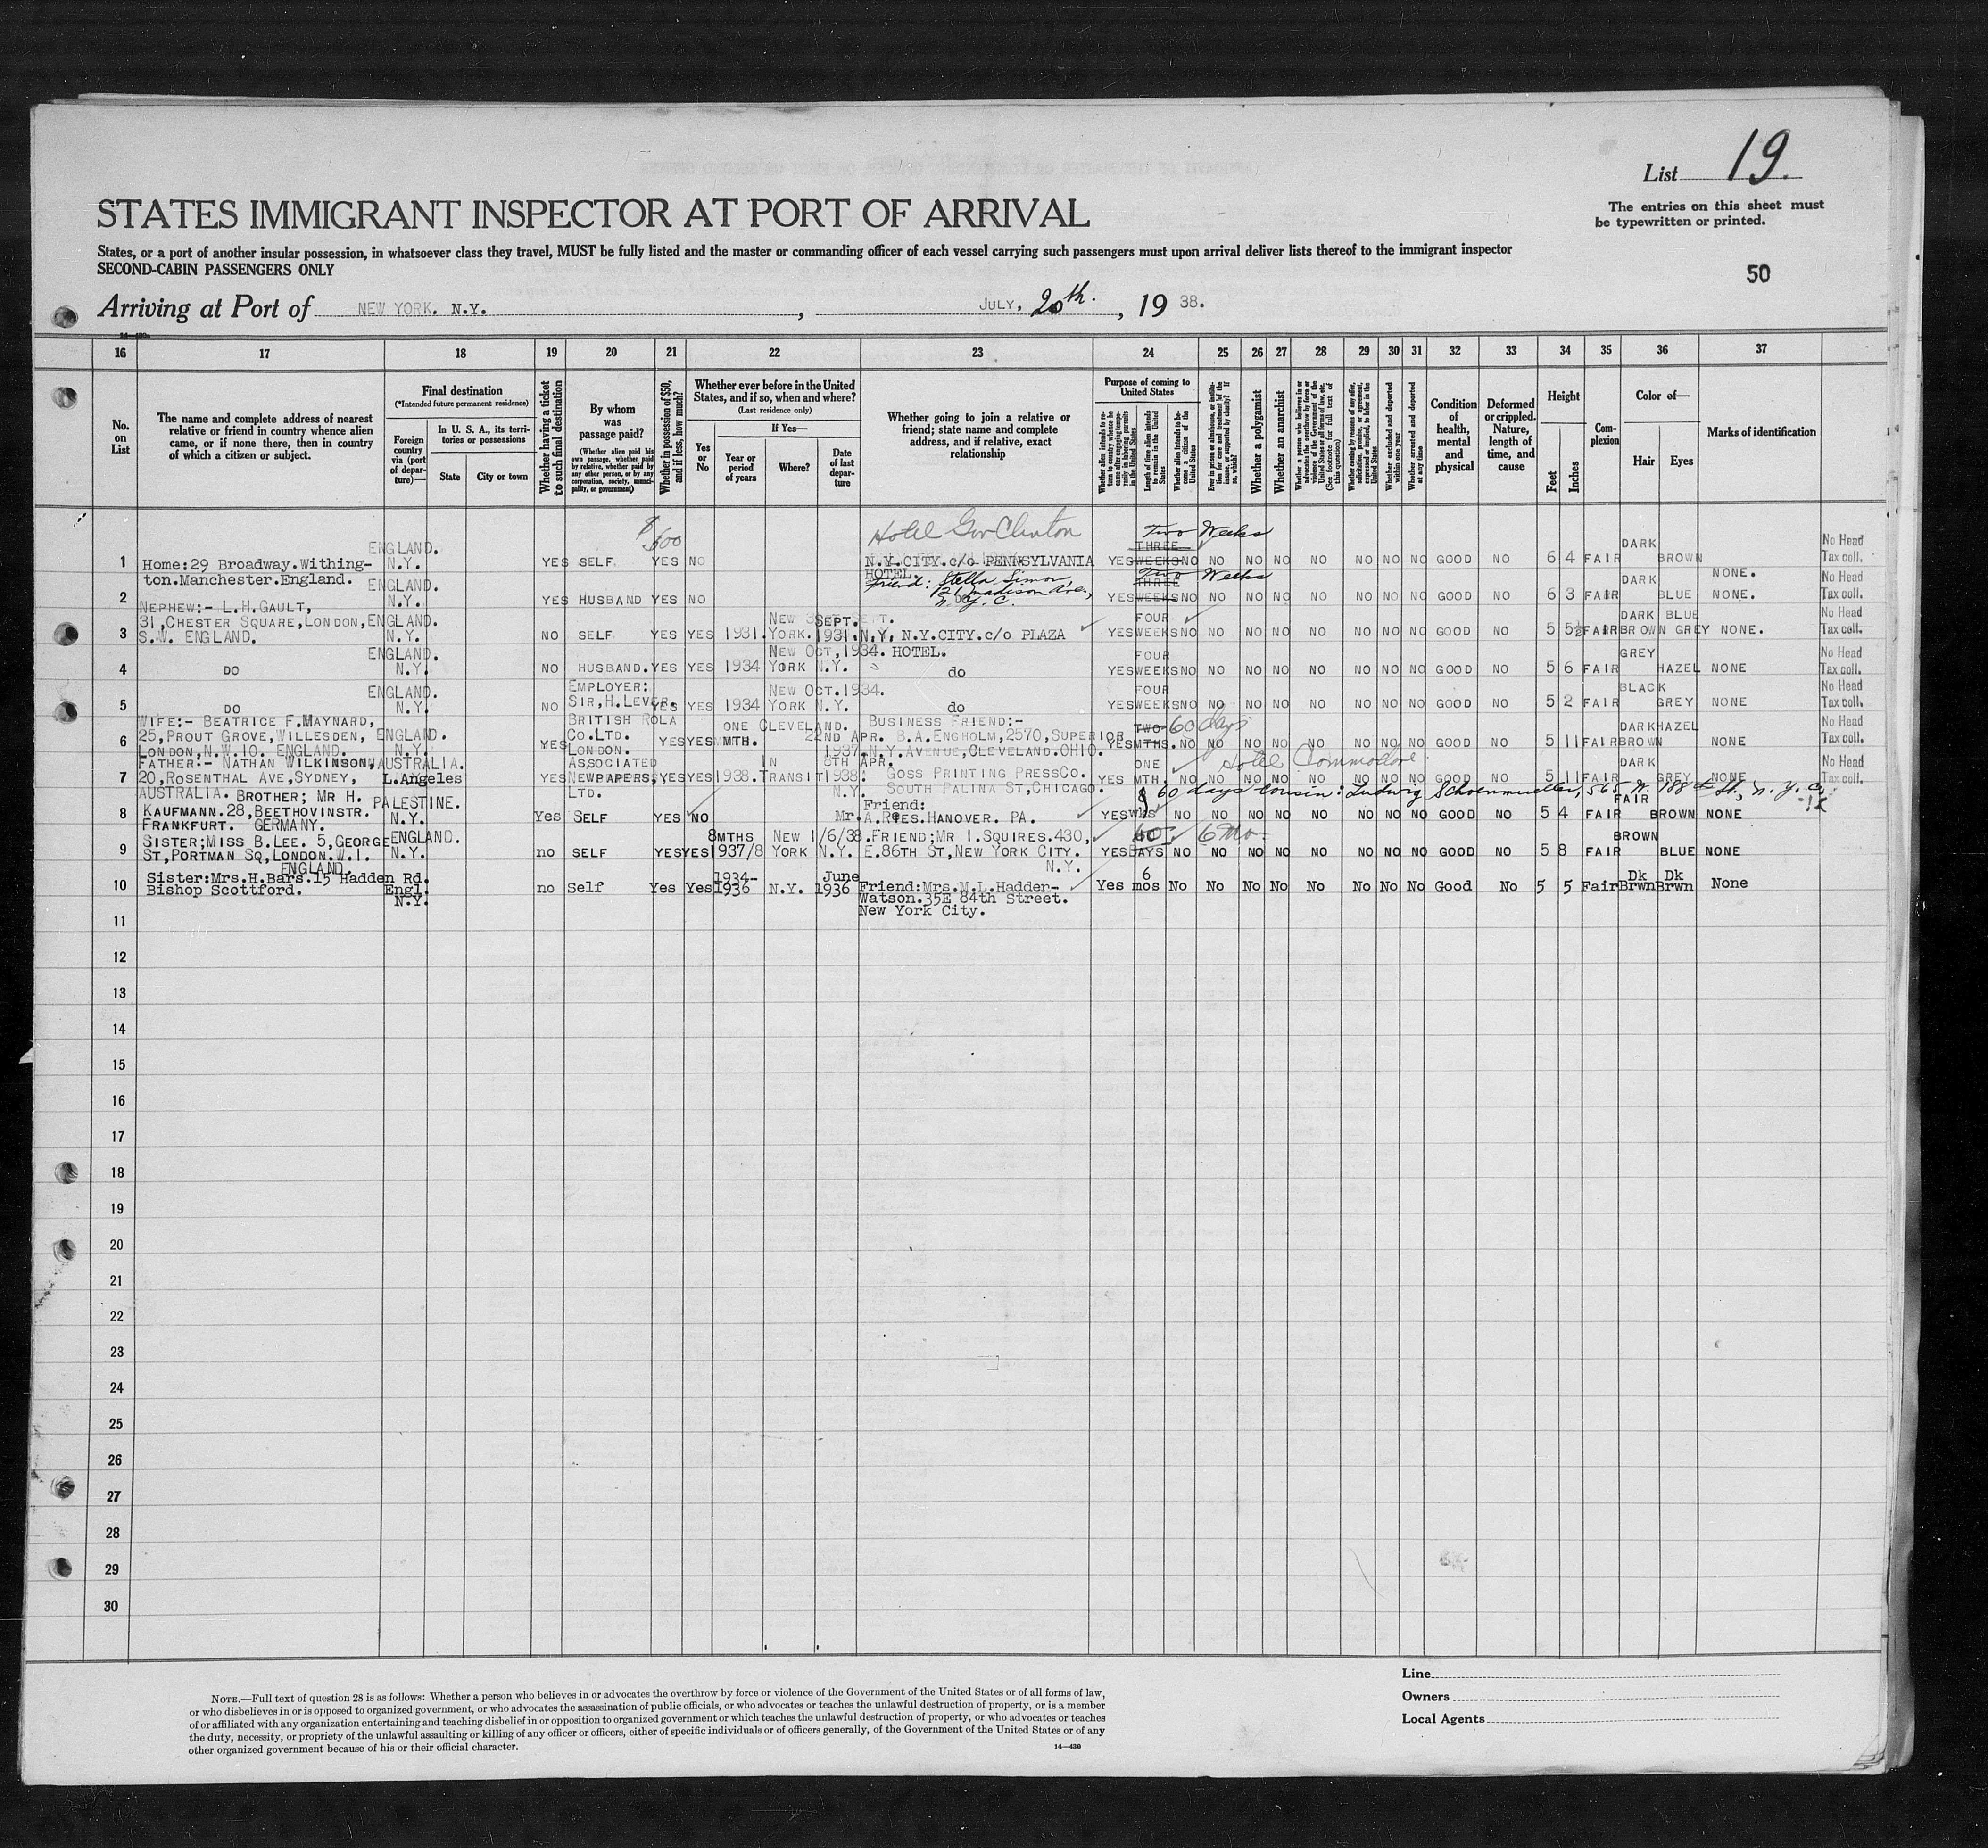 List 19.
The entries on this sheet must
be typewritten or printed.
STATES IMMIGRANT INSPECTOR AT PORT OF ARRIVAL
States, or a port of another insular possession, in whatsoever class they travel, MUST be fully listed and the master or commanding officer of each vessel carrying such passengers must upon arrival deliver lists thereof to the immigrant inspector
SECOND-CABIN PASSENGERS ONLY
50
Arriving at Port of NEW YORK. N.Y. , JULY, 20th. , 19 38.
16 17 18 19 20 21 22 23 24 25 26 27 28 29 30 31 32 33 34 35 36 37
No. on List
The name and complete address of nearest relative or friend in country whence alien came, or if none there, then in country of which a citizen or subject.
Final destination
(*Intended future permanent residence)
Foreign country via (port of departure)—
In U. S. A., its territories or possessions
State City or town
Whether having a ticket to such final destination
By whom was passage paid?
(Whether alien paid his own passage, whether paid by relative, whether paid by any other person, or by any corporation, society, municipality, or government)
Whether in possession of $50, and if less, how much?
Whether ever before in the United States, and if so, when and where?
(Last residence only)
Yes or No
If Yes—
Year or period of years Where? Date of last departure
Whether going to join a relative or friend; state name and complete address, and if relative, exact relationship
Purpose of coming to United States
Length of time alien intends to remain in the United States
Whether alien intends to become a citizen of the United States
Whether a polygamist
Whether an anarchist
Whether excluded and deported within one year
Whether arrested and deported at any time
Condition of health, mental and physical
Deformed or crippled. Nature, length of time, and cause
Height
Feet Inches
Complexion
Color of—
Hair Eyes
Marks of identification
$600 Hotel Gov Clinton Two Weeks
1 Home: 29 Broadway. Withington. Manchester. England. ENGLAND. N.Y. YES SELF. YES NO N.Y. CITY. c/o PENNSYLVANIA HOTEL. YES THREE WEEKS NO NO NO NO NO NO NO NO GOOD NO 6 4 FAIR DARK BROWN NONE. No Head Tax coll.
2 ENGLAND. N.Y. YES HUSBAND YES NO Friend: Stella Simon 121 Madison Ave., N.Y.C. DO Two Weeks YES THREE WEEKS NO NO NO NO NO NO NO NO GOOD NO 6 3 FAIR DARK BLUE NONE. No Head Tax coll.
3 NEPHEW:- L.H. GAULT, 31, CHESTER SQUARE, LONDON, S.W. ENGLAND. ENGLAND. N.Y. NO SELF YES YES 1931. NEW YORK. SEPT. 1931. N.Y. N.Y. CITY. c/o PLAZA HOTEL. YES FOUR WEEKS NO NO NO NO NO NO NO NO GOOD NO 5 5½ FAIR DARK BROWN BLUE GREY NONE. No Head Tax coll.
4 DO ENGLAND. N.Y. NO HUSBAND. YES YES 1934 NEW YORK OCT, 1934. N.Y. do YES FOUR WEEKS NO NO NO NO NO NO NO NO GOOD NO 5 6 FAIR GREY HAZEL NONE No Head Tax coll.
5 DO ENGLAND. N.Y. NO EMPLOYER: SIR, H. LEVER. YES YES 1934 NEW YORK OCT. 1934. N.Y. do YES FOUR WEEKS NO NO NO NO NO NO NO NO GOOD NO 5 2 FAIR BLACK GREY NONE No Head Tax coll.
6 WIFE:- BEATRICE F. MAYNARD, 25, PROUT GROVE, WILLESDEN, LONDON, N.W.10. ENGLAND. ENGLAND. N.Y. YES BRITISH ROLA CO. LTD. LONDON. YES YES ONE MTH. CLEVELAND. 22ND APR. 1937. N.Y. BUSINESS FRIEND:- B.A. ENGHOLM, 2570, SUPERIOR AVENUE, CLEVELAND. OHIO. YES TWO MTHS. 60 days NO NO NO NO NO NO NO NO GOOD NO 5 11 FAIR DARK BROWN HAZEL NONE No Head Tax coll.
7 FATHER:- NATHAN WILKINSON, 20, ROSENTHAL AVE, SYDNEY, AUSTRALIA. AUSTRALIA. L. Angeles YES ASSOCIATED NEWPAPERS, LTD. YES YES 1938. IN TRANSIT 8TH APR. 1938. N.Y. GOSS PRINTING PRESS CO. SOUTH PALINA ST, CHICAGO. Hotel Commodore YES ONE MTH. NO NO NO NO NO NO NO NO GOOD NO 5 11 FAIR DARK GREY NONE No Head Tax coll.
8 BROTHER; MR H. KAUFMANN. 28, BEETHOVINSTR. FRANKFURT. GERMANY. PALESTINE. N.Y. Yes SELF YES NO Friend: Mr. A. Rees. HANOVER. PA. 60 days Cousin: Ludwig Schoenmueller, 565 W. 188th St., N.Y.C. YES 8 WKS NO NO NO NO NO NO NO NO GOOD NO 5 4 FAIR FAIR BROWN NONE
9 SISTER; MISS B. LEE. 5, GEORGE ST, PORTMAN SQ, LONDON. W.I. ENGLAND. ENGLAND. N.Y. no SELF YES YES 8MTHS 1937/8 NEW YORK 1/6/38. N.Y. FRIEND; MR I. SQUIRES. 430, E. 86TH ST, NEW YORK CITY. N.Y. YES 60 DAYS 6 Mo. NO NO NO NO NO NO NO NO GOOD NO 5 8 FAIR BROWN BLUE NONE
10 Sister: Mrs. H. Bars. 15 Hadden Rd. Bishop Scottford. Engl. N.Y. no Self Yes Yes 1934-1936 N.Y. June 1936 Friend: Mrs. M.L. Hadder-Watson. 35E 84th Street. New York City. Yes 6 mos No No No No No No No No Good No 5 5 Fair Dk Brwn Dk Brwn None
11
12
13
14
15
16
17
18
19
20
21
22
23
24
25
26
27
28
29
30
NOTE.—Full text of question 28 is as follows: Whether a person who believes in or advocates the overthrow by force or violence of the Government of the United States or of all forms of law,
or who disbelieves in or is opposed to organized government, or who advocates the assassination of public officials, or who advocates or teaches the unlawful destruction of property, or is a member
of or affiliated with any organization entertaining and teaching disbelief in or opposition to organized government or which teaches the unlawful destruction of property, or who advocates or teaches
the duty, necessity, or propriety of the unlawful assaulting or killing of any officer or officers, either of specific individuals or of officers generally, of the Government of the United States or of any
other organized government because of his or their official character.
14—430
Line
Owners
Local Agents